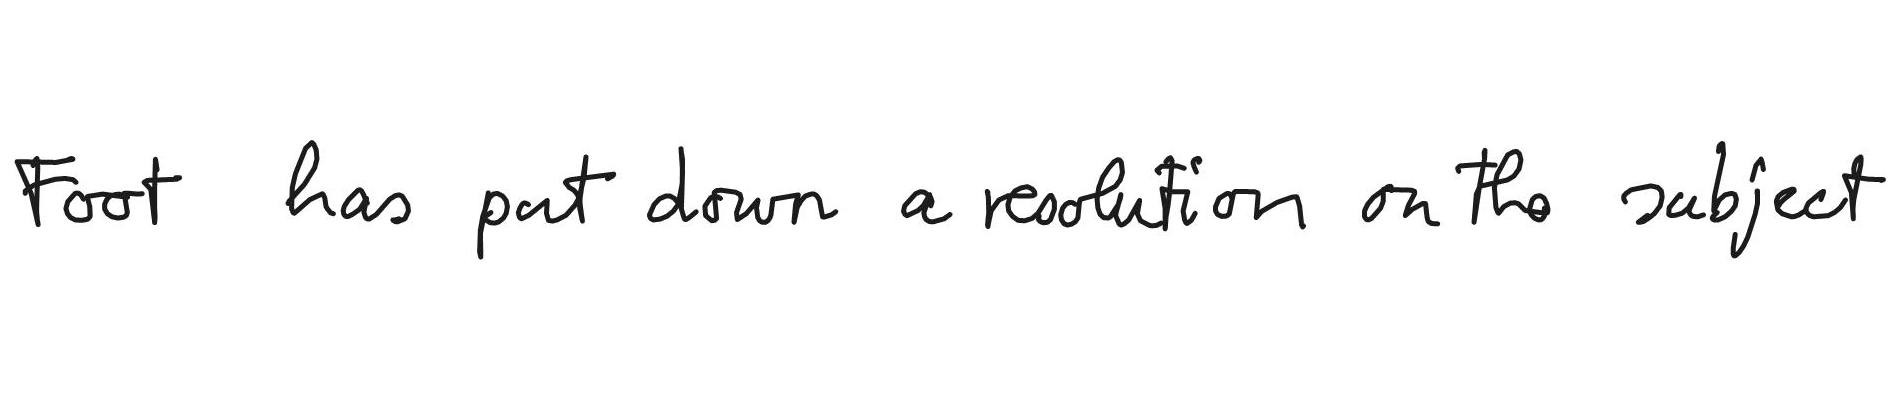 Foot has put down a resolution on the subject